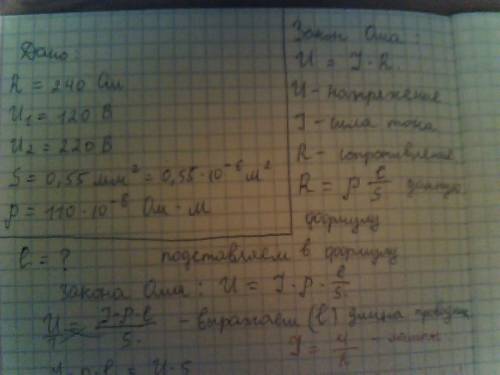 Дано:
R = 240 Ом
U₁ = 120 В
U₂ = 220 В
S = 0,55 мм² = 0,55·10⁻⁶ м²
ρ = 110·10⁻⁸ Ом·м
ℓ = ?
Закон Ома:
U = I·R.
U – напряжение
I – сила тока
R – сопротивление
R = ρ ℓ/S
формулу
подставляем в формулу
закона Ома: U = I·ρ·ℓ/S.
U/1 = I·ρ·ℓ/S. – выражаем (ℓ) длина
I = U/R
I·ρ·ℓ = U·S